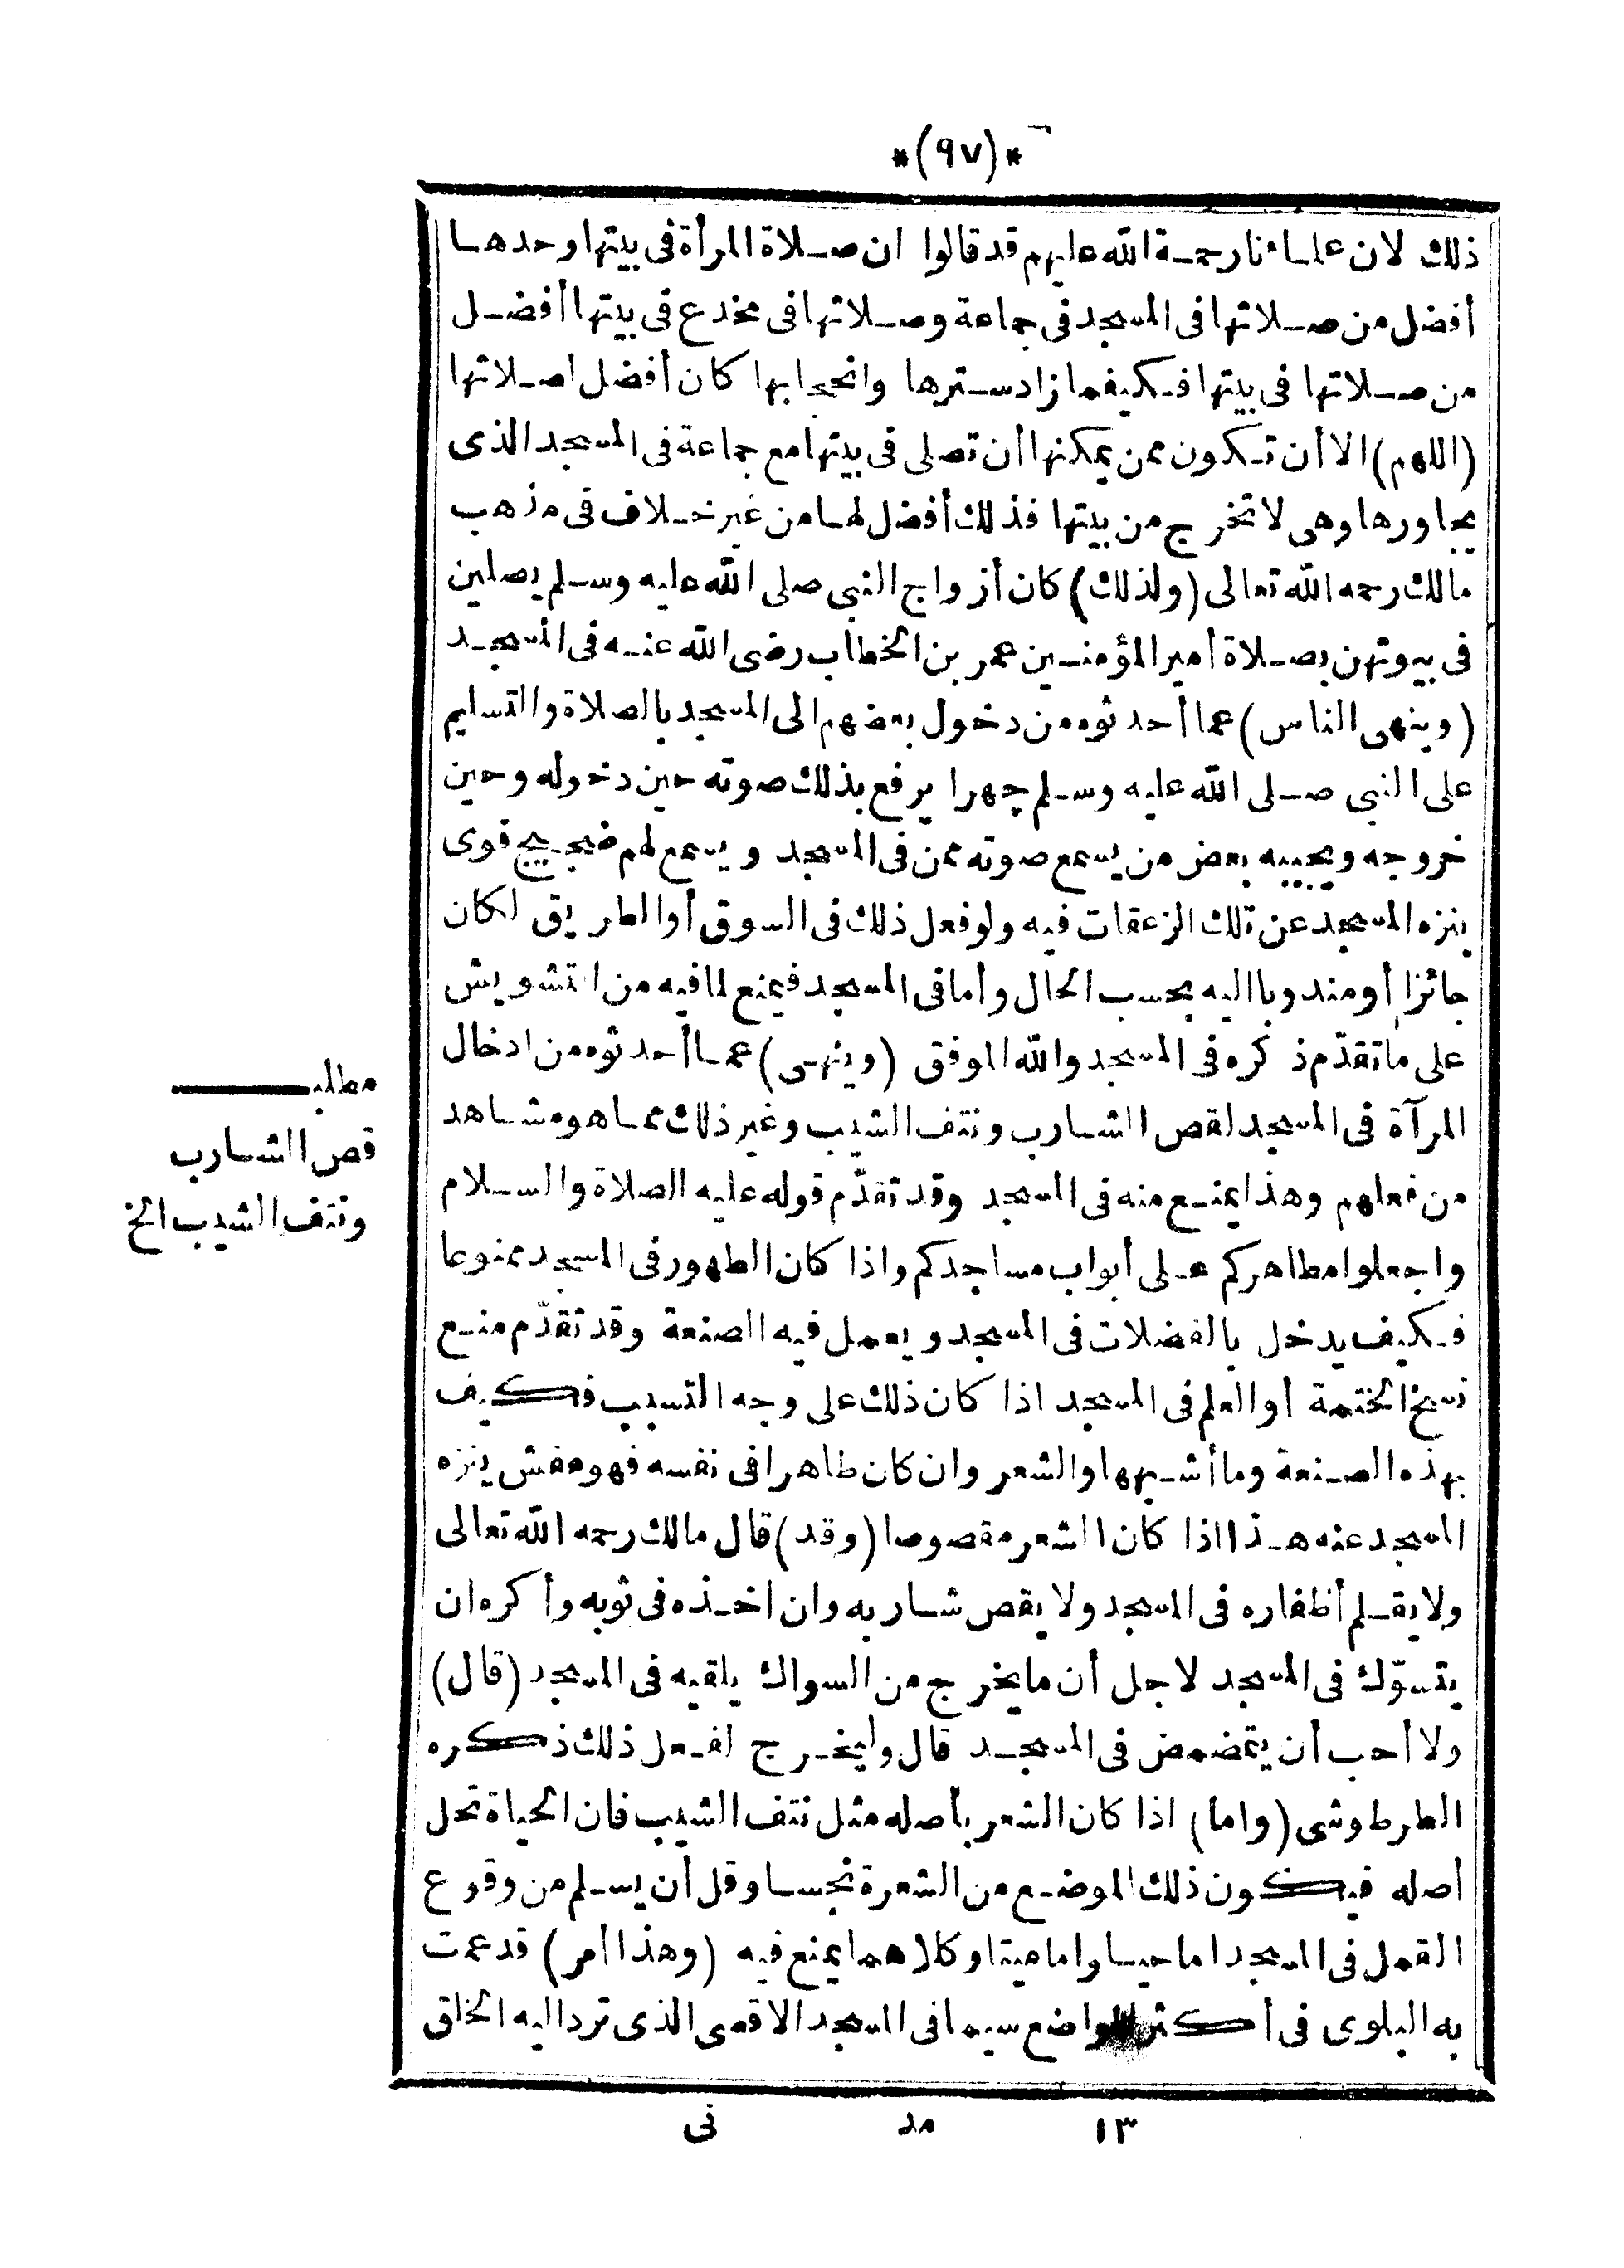 *(٩٧)*
ذلك لان علماءنا رحمة الله عليهم قد قالوا ان صلاة المرأة فى بيتها وحدها
أفضل من صلاتها فى المسجد فى جماعة وصلاتها فى مخدع فى بيتها أفضل
من صلاتها فى بيتها فكيفما زاد سترها وانحجابها كان أفضل لصلاتها
(اللهم) الا أن تكون ممن يمكنها أن تصلى فى بيتها مع جماعة فى المسجد الذى
يجاورها وهى لا تخرج من بيتها فذلك أفضل لها من غير خلاف فى مذهب
مالك رحمه الله تعالى (ولذلك) كان أزواج النبى صلى الله عليه وسلم يصلين
فى بيوتهن بصلاة أمير المؤمنين عمر بن الخطاب رضى الله عنه فى المسجد
(وينهى الناس) عما أحدثوه من دخول بعضهم الى المسجد بالصلاة والتسليم
على النبى صلى الله عليه وسلم جهرا يرفع بذلك صوته حين دخوله وحين
خروجه ويجيبه بعض من يسمع صوته ممن فى المسجد ويسمع لهم ضجيج قوى
ينزه المسجد عن تلك الزعقات فيه ولو فعل ذلك فى السوق أو الطريق لكان
جائزا أو مندوبا اليه بحسب الحال وأما فى المسجد فيمنع لما فيه من التشويش
على ما تقدّم ذكره فى المسجد والله الموفق (وينهى) عما أحدثوه من ادخال
المرآة فى المسجد لقص الشارب ونتف الشيب وغير ذلك مما هو مشاهد
من فعلهم وهذا يمنع منه فى المسجد وقد تقدّم قوله عليه الصلاة والسلام
واجعلوا مطاهركم على أبواب مساجدكم واذا كان الطهور فى المسجد ممنوعا
فكيف يدخل بالفضلات فى المسجد ويعمل فيه الصنعة وقد تقدّم منع
نسخ الختمة أو العلم فى المسجد اذا كان ذلك على وجه التسبب فكيف
بهذه الصنعة وما أشبهها والشعر وان كان طاهرا فى نفسه فهو عفش ينزه
المسجد عنه هذا اذا كان الشعر مقصوصا (وقد) قال مالك رحمه الله تعالى
ولا يقلم أظفاره فى المسجد ولا يقص شاربه وان اخذه فى ثوبه وأكره ان
يتسوّك فى المسجد لاجل أن ما يخرج من السواك يلقيه فى المسجد (قال)
ولا أحب أن يتمضمض فى المسجد قال وليخرج لفعل ذلك ذكره
الطرطوشى (واما) اذا كان الشعر بأصله مثل نتف الشيب فان الحياة تحل
أصله فيكون ذلك الموضع من الشعرة نجسا وقل أن يسلم من وقوع
القمل فى المسجد اما حيا واما ميتا وكلاهما يمنع فيه (وهذا أمر) قد عمت
به البلوى فى أكثر المواضع سيما فى المسجد الاقصى الذى ترد اليه الخلق
مطلب
قص الشارب
ونتف الشيب الخ
١٣ مد نى